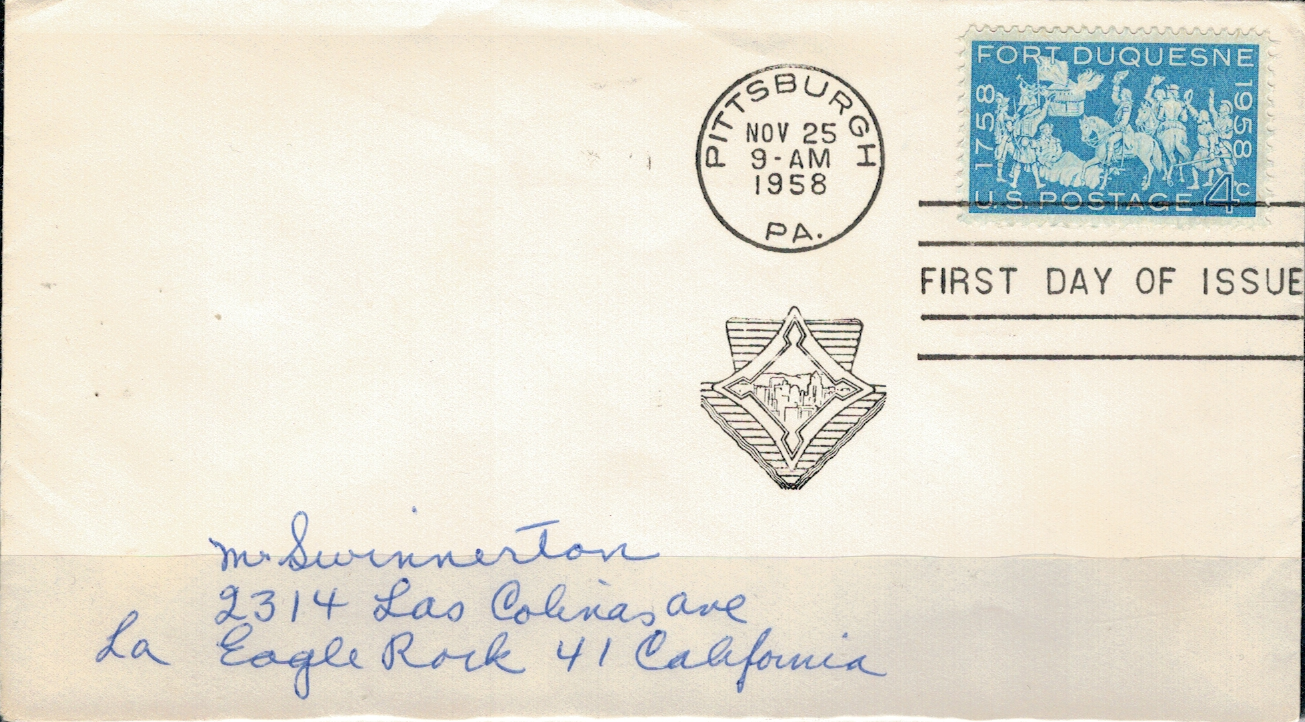 FORT DUQUESNE
1758
1958
U.S. POSTAGE 4c
PITTSBURGH
NOV 25
9-AM
1958
PA.
FIRST DAY OF ISSUE
Mr Swinnerton
2314 Las Colinas ave
La Eagle Rock 41 California